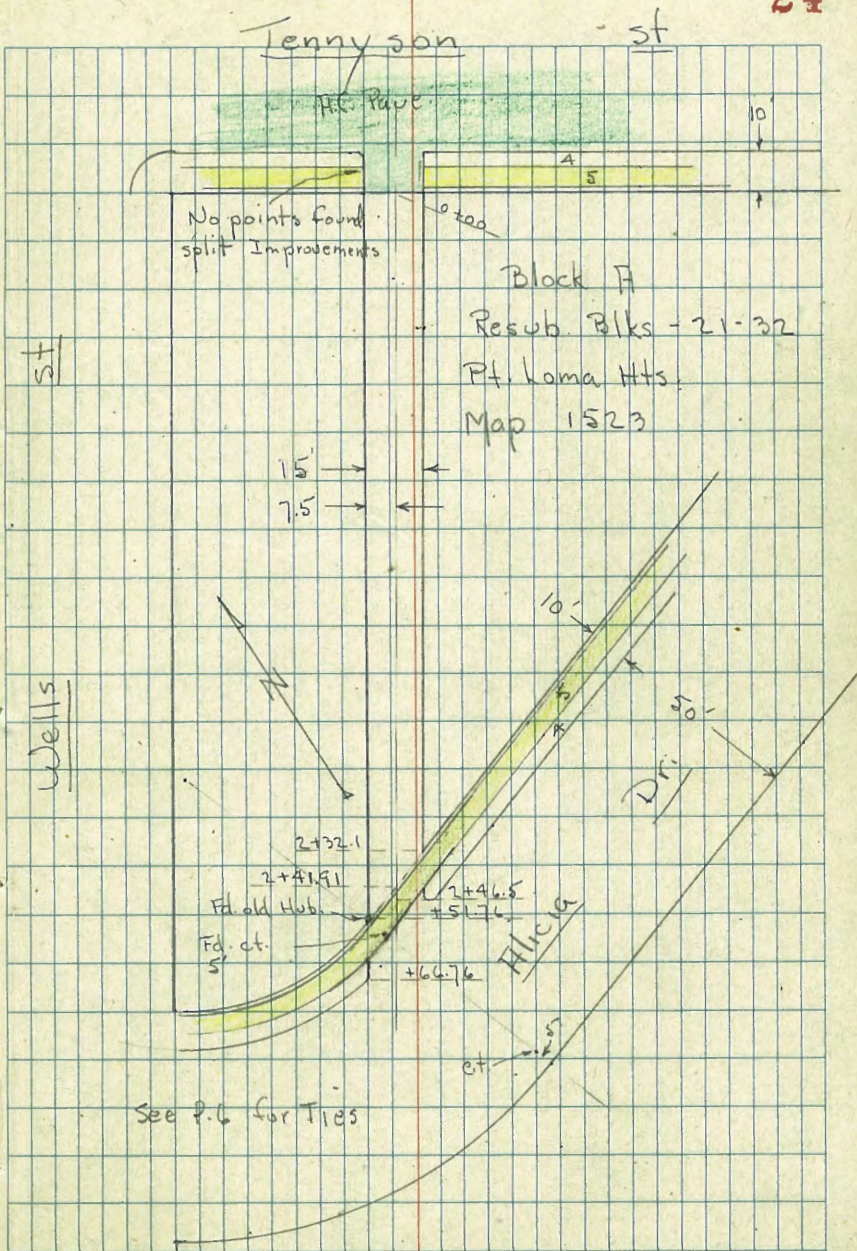 24
Tennyson St
A.C. Pave.
10'
4
5
No points found
split Improvements
0+00
Block A
Resub. Blks - 21-32
Pt. Loma Hts.
Map 1523
St
15'
7.5
10'
N
5
4
50'
Wells
Dri
2+32.1
2+41.91
2+46.5
Fd. old Hub.
+51.76
Fd. ct.
5'
Alicia
+66.76
5
ct.
See P.6 for Ties